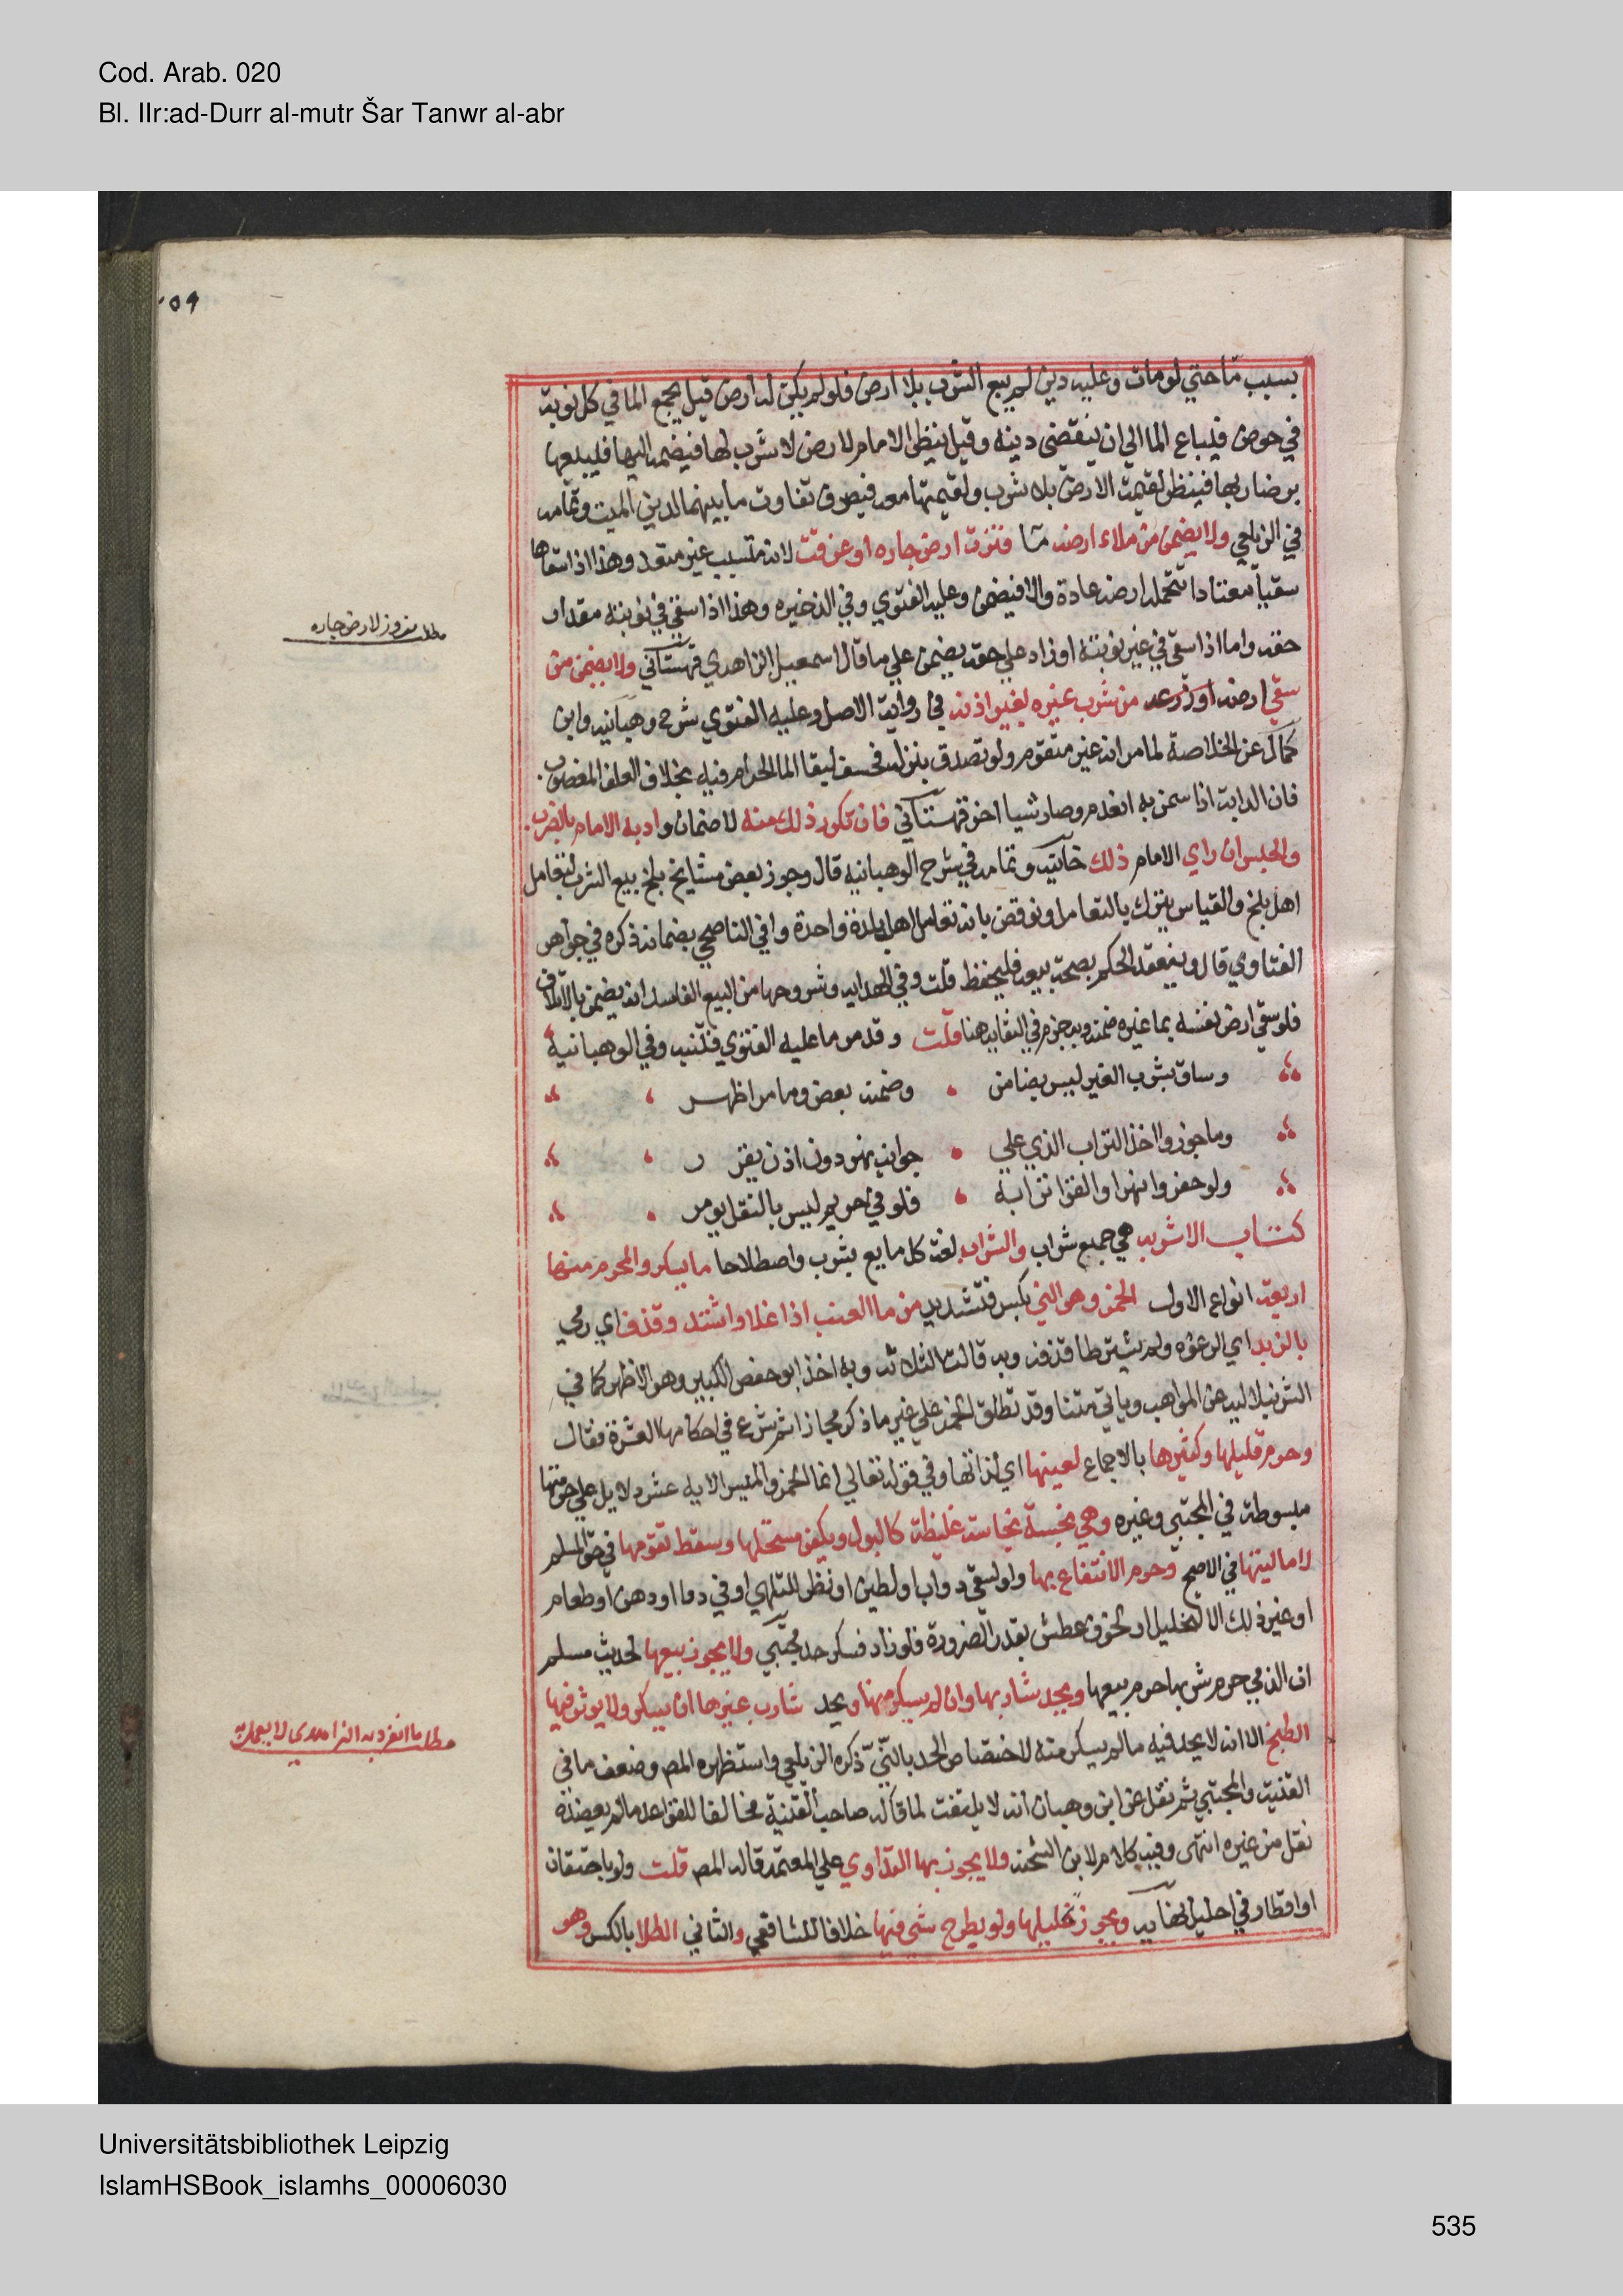 Cod. Arab. 020
Bl. IIr:ad-Durr al-mutr Šar Tanwr al-abr
بسبب ما حتي لو مات وعليه دين لم يبع الشرب بلا ارض فلو لم يكن له ارض قيل يجمع الما في كل نوبة
في حوض فيباع الما الي ان ينقضي دينه وقيل ينظر الامام لارض لا شرب لها فيضمه اليها فيبيعها
برضا ربها فينظر لقيمة الارض بلا شرب ولقيمتها معه فيصرف تفاوت ما بينهما لدين الميت وتمامه
في الزيلعي ولا يضمن من ملاء ارضه ما فنزت ارض جاره او غرقت لانه متسبب غير متعد وهذا اذا سقاها
سقيا معتادا تتحمله ارضه عادة والا فيضمن وعليه الفتوي وفي الذخيره وهذا اذا سقي في نوبته مقدار
حقه واما اذا سقي في غير نوبته او زاد علي حقه يضمن علي ما قال اسمعيل الزاهدي قهستاني ولا يضمن من
مطلب نزوز لارض جاره
سقي ارضه او زرعه من شرب غيره بغير اذنه في رواية الاصل وعليه الفتوي شرح وهبانيه وابن
كمال عن الخلاصة لما مر انه غير متقوم ولو تصدق بنزله فحسن لبقا الما الحرام فيه بخلاف العلف المغصوب
فان الدابة اذا سمن به انعدم وصار شيا اخر قهستاني فان تكرر ذلك منه لا ضمان وادبه الامام بالضرب
والحبس ان راي الامام ذلك خانيه وتمامه في شرح الوهبانيه قال وجوز بعض مشايخ بلخ بيع الشرب لتعامل
اهل بلخ والقياس يترك بالتعامل ونوقض بانه تعامل اهل بلدة واحدة وافي الناصحي بضمانه ذكره في جواهر
الفتاوي قال وينعقد الحكم بصحة بيعه فليحفظ قلت وفي الهدايه وشروحها من البيع الفاسد انه يضمن بالاتلاف
فلو سقي ارض نفسه بما غيره ضمنه وبه جزم في النقايه هنا قلت وقد مر ما عليه الفتوي فتنبه وفي الوهبانية
وساق بشرب الغير ليس بضامن وضمنه بعض وما مر اظهر
وما جوزوا اخذ التراب الذي علي جوانب نهر دون اذن يقرر
ولو حفروا نهرا والقوا ترابه فلو في حريم ليس بالنقل يومر
كتاب الاشربه هي جمع شراب والشراب لغة كل مايع يشرب واصطلاحا ما يسكر والمحرم منها
اربعة انواع الاول الخمر وهو الني بكسر فتشديد من ما العنب اذا غلا واشتد وقذف اي رمي
بالزبد اي الرغوه ولم يشترطا قذفه وبه قالت الثلاثه وبه اخذ ابو حفص الكبير وهو الاظهر كما في
الشرنبلاليه عن المواهب وياتي متنا وقد تطلق الخمر علي غير ما ذكر مجازا ثم شرع في احكامها العشرة فقال
وحرم قليلها وكثيرها بالاجماع لعينها اي لذاتها وفي قوله تعالي انما الخمر والميسر الايه عشر دلايل علي حرمتها
مبسوطة في المجتبي وغيره وهي نجسة نجاسة غليظة كالبول ويكفر مستحلها وسقط تقومها في حق المسلم
لا ماليتها في الاصح وحرم الانتفاع بها ولو لسقي دواب او لطين او نظر للتلهي او في دوا او دهن او طعام
او غير ذلك الا لتخليل او لخوف عطش بقدر الضرورة فلو زاد فسكر حد مجتبي ولا يجوز بيعها لحديث مسلم
ان الذي حرم شربها حرم بيعها ويحد شاربها وان لم يسكر منها ويحد شارب غيرها ان سكر ولا يوثر فيها
الطبخ الا انه لا يحد فيه ما لم يسكر منه لاختصاص الحد بالنيّ ذكره الزيلعي واستظهره المص وضعف ما في
مطلب ما انفرد به الزاهدي لا يعمل به
القنية والمجتبي ثم نقل عن ابن وهبان انه لا يلتفت لما قاله صاحب القنية مخالفا للقواعد ما لم يعضده
نقل من غيره انتهي وفيه كلام لابن الشحنه ولا يجوز بها التداوي علي المعتمد قاله المص قلت ولو باحتقان
او اقطار في احليل نهايه ويجوز تخليلها ولو بطرح شي فيها خلافا للشافعي والثاني الطلا بالكسر وهو
Universitätsbibliothek Leipzig
IslamHSBook_islamhs_00006030
535